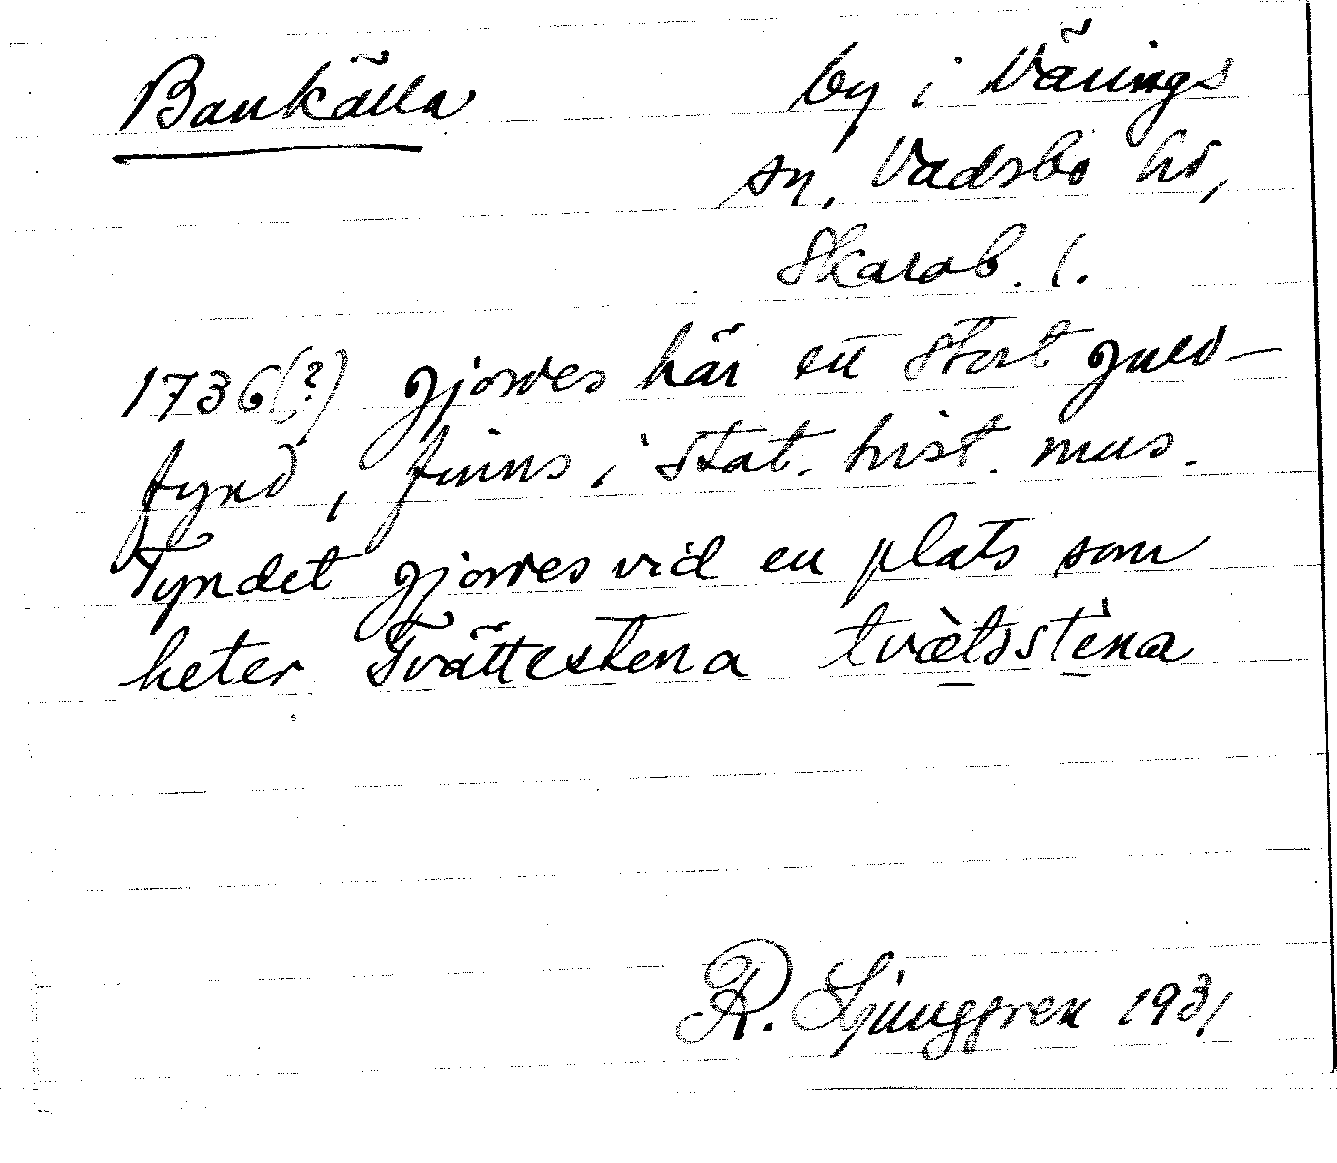 Bankälla by i Värings
sn, Vadsbo hd,
Skarab. l.
1736(?) gjordes här ett stort guld-
fynd, finns i Stat. hist. mus.
Fyndet gjordes vid en plats som
heter Tvättestena tvètsstèna
R. Ljunggren 1931